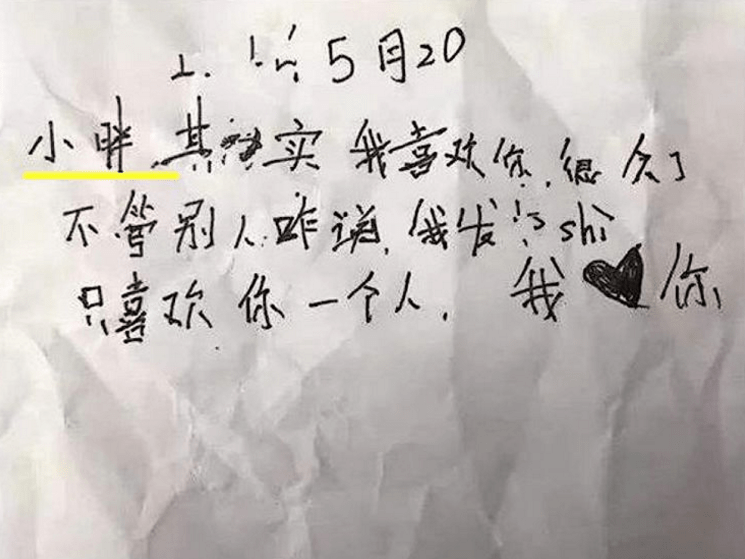 5月20
小胖.其实 我喜欢你.很久了
不管别人咋说.我发shi
只喜欢你一个人. 我♥你